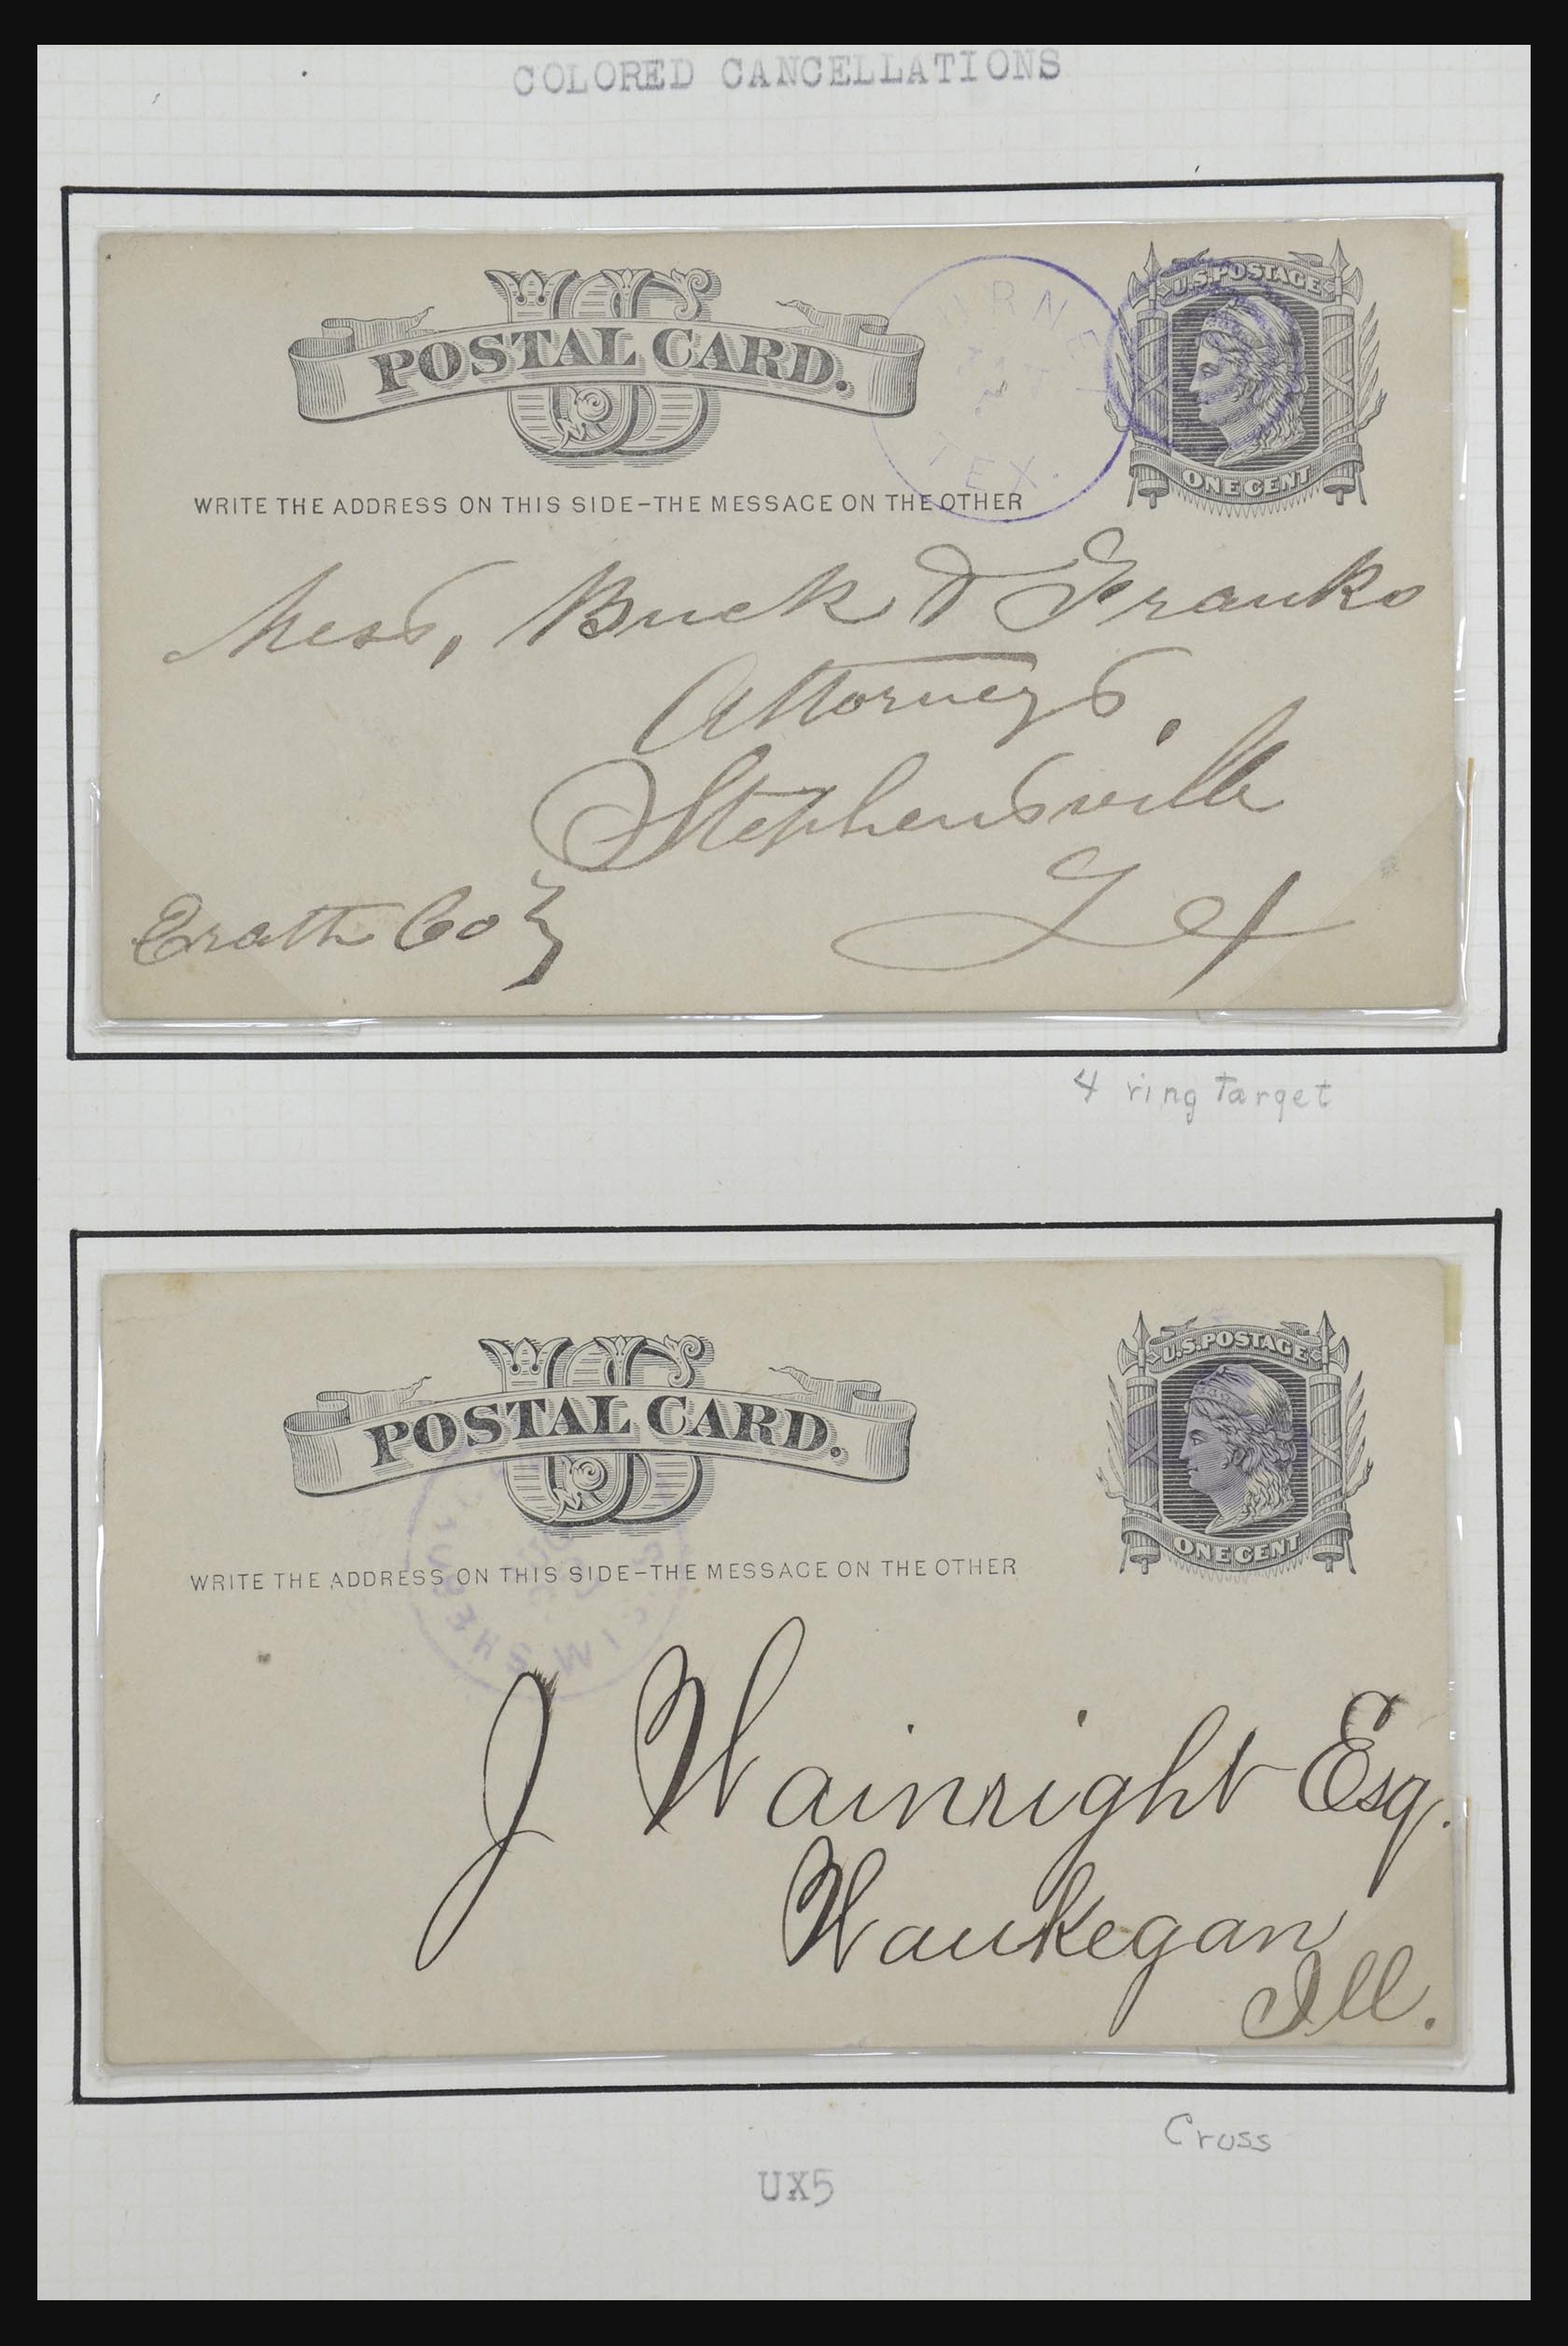 COLORED CANCELLATIONS
POSTAL CARD.
U.S. POSTAGE
ONE CENT
TEX.
WRITE THE ADDRESS ON THIS SIDE-THE MESSAGE ON THE OTHER
Mess, Buck & Franks
Attorneys,
Stephensville
Erath Co
Tex
4 ring target
US
POSTAL CARD.
U.S. POSTAGE
ONE CENT
WRITE THE ADDRESS ON THIS SIDE-THE MESSAGE ON THE OTHER
J Wainright Esq.
Waukegan
Ill.
Cross
UX5